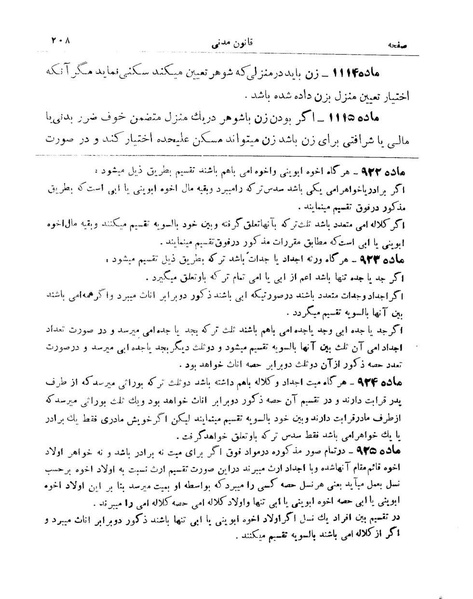 صفحه قانون مدنی ۲۰۸
ماده ۱۱۱۴ ـ زن باید در منزلی که شوهر تعیین میکند سکنی نماید مگر آنکه
اختیار تعیین منزل بزن داده شده باشد .
ماده ۱۱۱۵ ـ اگر بودن زن با شوهر در یك منزل متضمن خوف ضرر بدنی یا
مالی یا شرافتی برای زن باشد زن میتواند مسکن علیحده اختیار کند و در صورت
ماده ۹۲۲ ـ هر گاه اخوه ابوینی و اخوه امی باهم باشند تقسیم بطریق ذیل میشود :
اگر برادر یا خواهر امی یکی باشد سدس ترکه را میبرد و بقیه مال اخوه ابوینی یا ابی است که بطریق
مذکور در فوق تقسیم مینمایند .
اگر کلاله امی متعدد باشد ثلث ترکه بآنها تعلق گرفته و بین خود بالسویه تقسیم میکنند و بقیه مال اخوه
ابوینی یا ابی است که مطابق مقررات مذکور در فوق تقسیم مینمایند .
ماده ۹۲۳ ـ هر گاه ورثه اجداد یا جدات باشد ترکه بطریق ذیل تقسیم میشود :
اگر جد یا جده تنها باشد اعم از ابی یا امی تمام ترکه باو تعلق میگیرد .
اگر اجداد و جدات متعدد باشند در صورتیکه ابی باشند ذکور دو برابر اناث میبرد و اگر همه امی باشند
بین آنها بالسویه تقسیم میگردد .
اگر جد یا جده ابی و جد یا جده امی باهم باشند ثلث ترکه بجد یا جده امی میرسد و در صورت تعداد
اجداد امی آن ثلث بین آنها بالسویه تقسیم میشود و دو ثلث دیگر بجد یا جده ابی میرسد و در صورت
تعدد حصه ذکور از آن دو ثلث دو برابر حصه اناث خواهد بود .
ماده ۹۲۴ ـ هر گاه میت اجداد و کلاله باهم داشته باشد دو ثلث ترکه بوراثی میرسد که از طرف
پدر قرابت دارند و در تقسیم آن حصه ذکور دو برابر اناث خواهد بود و یك ثلث بوراثی میرسد که
از طرف مادر قرابت دارند و بین خود بالسویه تقسیم مینمایند لیکن اگر خویش مادری فقط یك برادر
یا یك خواهر امی باشد فقط سدس ترکه باو تعلق خواهد گرفت .
ماده ۹۲۵ ـ در تمام صور مذکوره در مواد فوق اگر برای میت نه برادر باشد و نه خواهر اولاد
اخوه قائم مقام آنها شده و با اجداد ارث میبرند در این صورت تقسیم ارث نسبت به اولاد اخوه برحسب
نسل بعمل میآید یعنی هر نسل حصه کسی را میبرد که بواسطه او بمیت میرسد بنا بر این اولاد اخوه
ابوینی یا ابی حصه اخوه ابوینی یا ابی تنها و اولاد کلاله امی حصه کلاله امی را میبرند .
در تقسیم بین افراد یك نسل اگر اولاد اخوه ابوینی یا ابی تنها باشند ذکور دو برابر اناث میبرد و
اگر از کلاله امی باشند بالسویه تقسیم میکنند .